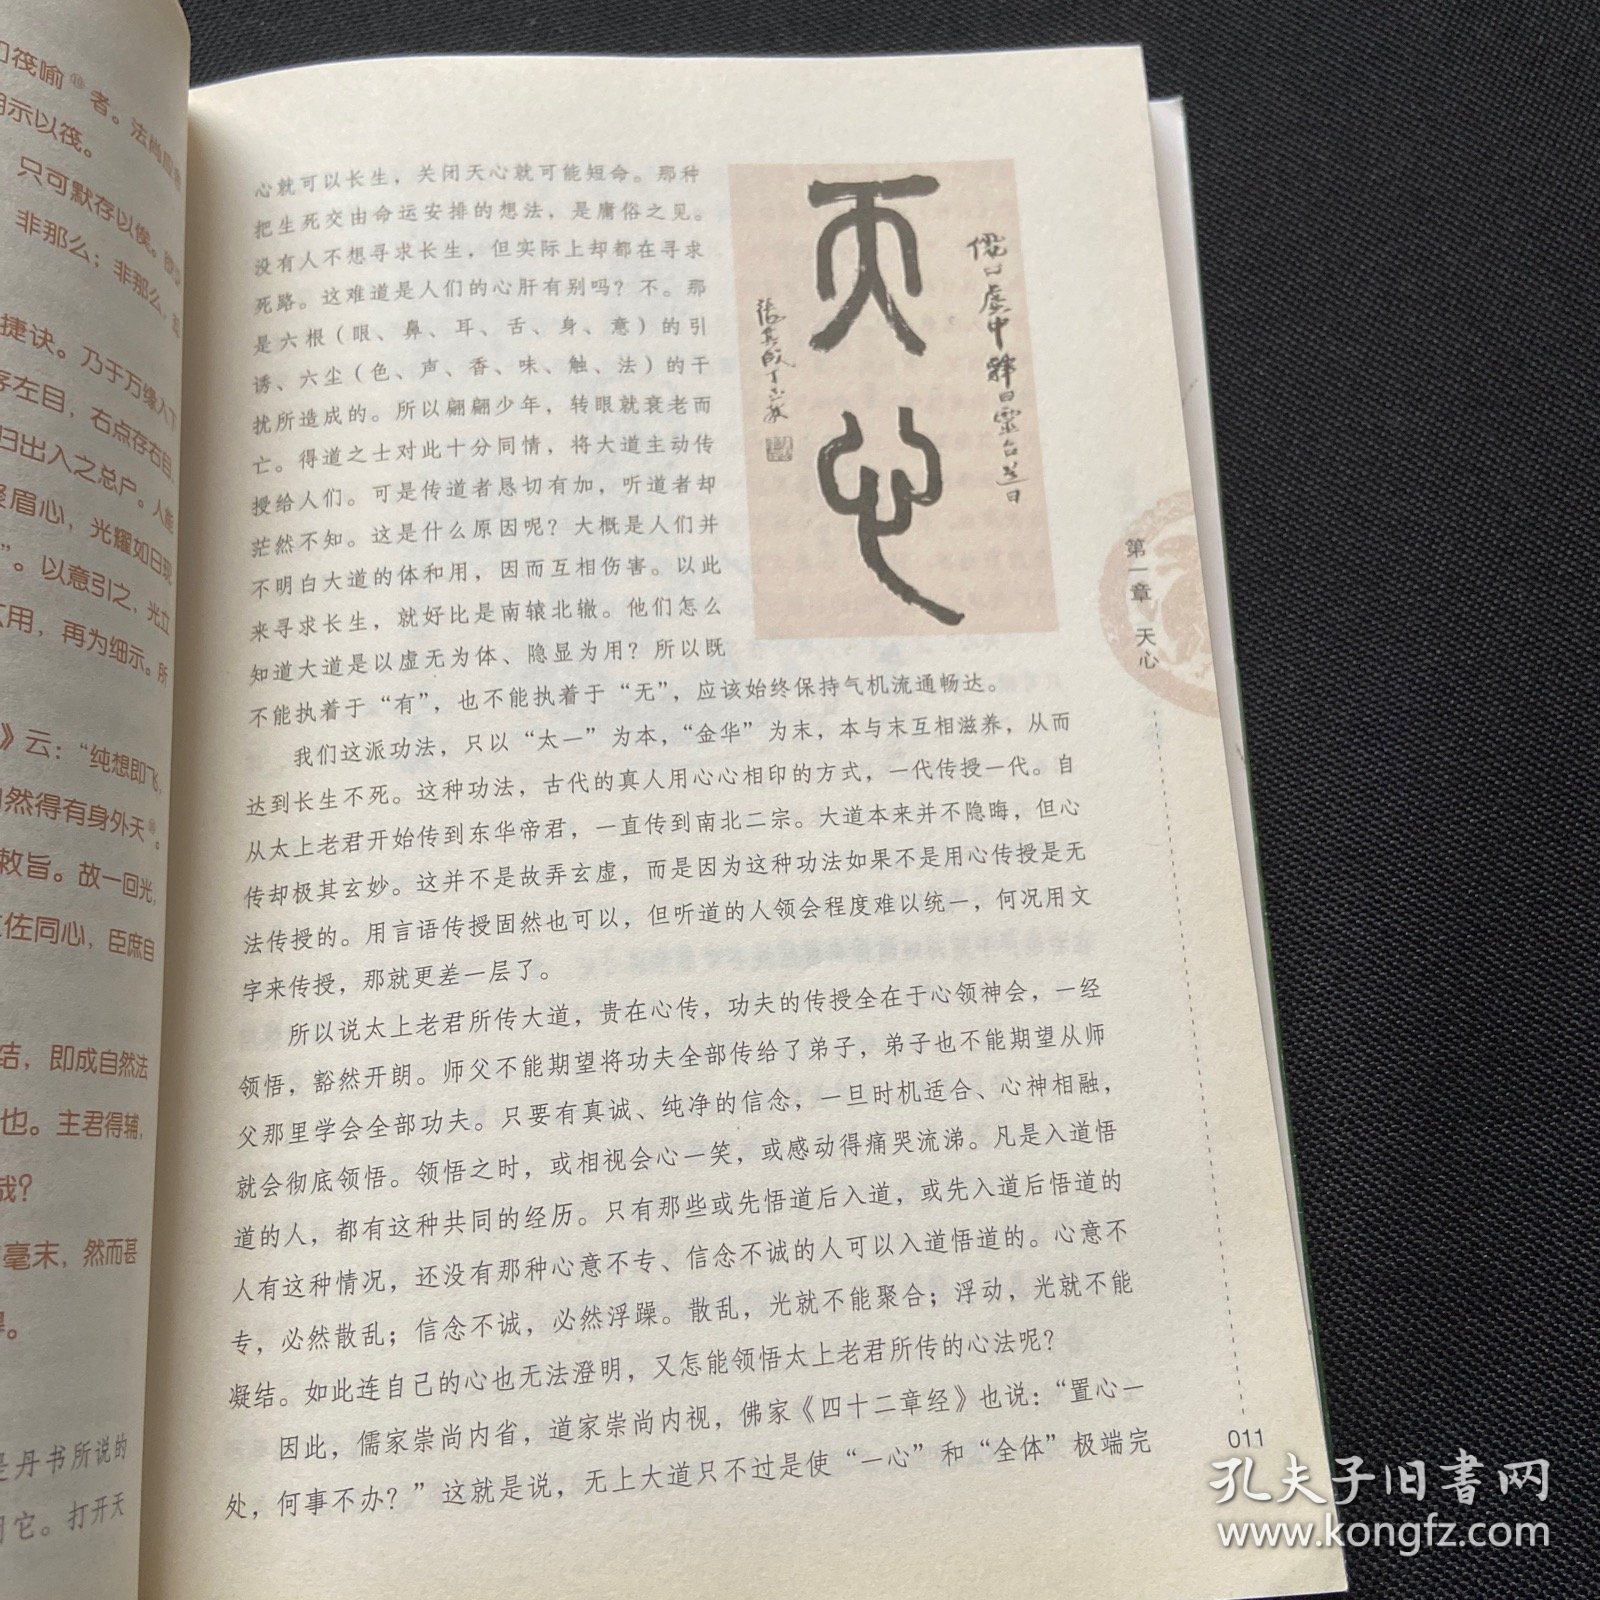 和筏喻⑪者。法尚应
明示以筏。
只可默存以俟。
非那么；非那么，
捷诀。乃于万缘入下
存左目，右点存右目，
归出入之总户。人能
眉心，光耀如日现
”。以意引之，光立
用，再为细示。所
》云：“纯想即飞，
自然得有身外天
敕旨。故一回光，
佐同心，臣庶自
结，即成自然法
也。主君得辅，
哉？
毫末，然而甚
得。
是丹书所说的
它。打开天
心就可以长生，关闭天心就可能短命。那种
把生死交由命运安排的想法，是庸俗之见。
没有人不想寻求长生，但实际上却都在寻求
死路。这难道是人们的心肝有别吗？不。那
是六根（眼、鼻、耳、舌、身、意）的引
诱、六尘（色、声、香、味、触、法）的干
扰所造成的。所以翩翩少年，转眼就衰老而
亡。得道之士对此十分同情，将大道主动传
授给人们。可是传道者恳切有加，听道者却
茫然不知。这是什么原因呢？大概是人们并
不明白大道的体和用，因而互相伤害。以此
来寻求长生，就好比是南辕北辙。他们怎么
知道大道是以虚无为体、隐显为用？所以既
不能执着于“有”，也不能执着于“无”，应该始终保持气机流通畅达。
我们这派功法，只以“太一”为本，“金华”为末，本与末互相滋养，从而
达到长生不死。这种功法，古代的真人用心心相印的方式，一代传授一代。自
从太上老君开始传到东华帝君，一直传到南北二宗。大道本来并不隐晦，但心
传却极其玄妙。这并不是故弄玄虚，而是因为这种功法如果不是用心传授是无
法传授的。用言语传授固然也可以，但听道的人领会程度难以统一，何况用文
字来传授，那就更差一层了。
所以说太上老君所传大道，贵在心传，功夫的传授全在于心领神会，一经
领悟，豁然开朗。师父不能期望将功夫全部传给了弟子，弟子也不能期望从师
父那里学会全部功夫。只要有真诚、纯净的信念，一旦时机适合、心神相融，
就会彻底领悟。领悟之时，或相视会心一笑，或感动得痛哭流涕。凡是入道悟
道的人，都有这种共同的经历。只有那些或先悟道后入道，或先入道后悟道的
人有这种情况，还没有那种心意不专、信念不诚的人可以入道悟道的。心意不
专，必然散乱；信念不诚，必然浮躁。散乱，光就不能聚合；浮动，光就不能
凝结。如此连自己的心也无法澄明，又怎能领悟太上老君所传的心法呢？
因此，儒家崇尚内省，道家崇尚内视，佛家《四十二章经》也说：“置心一
处，何事不办？”这就是说，无上大道只不过是使“一心”和“全体”极端完
天心
儒曰虚中释曰灵台道曰
张其成丁
第一章 天心
011
孔夫子旧书网
www.kongfz.com